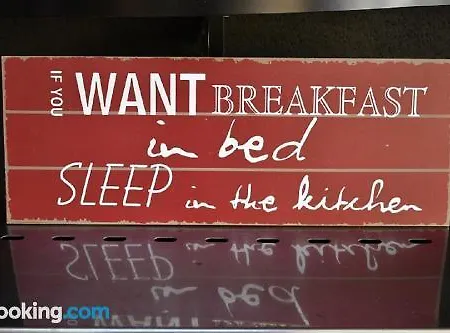 IF YOU WANT BREAKFAST
in bed
SLEEP in the kitchen
ooking.com